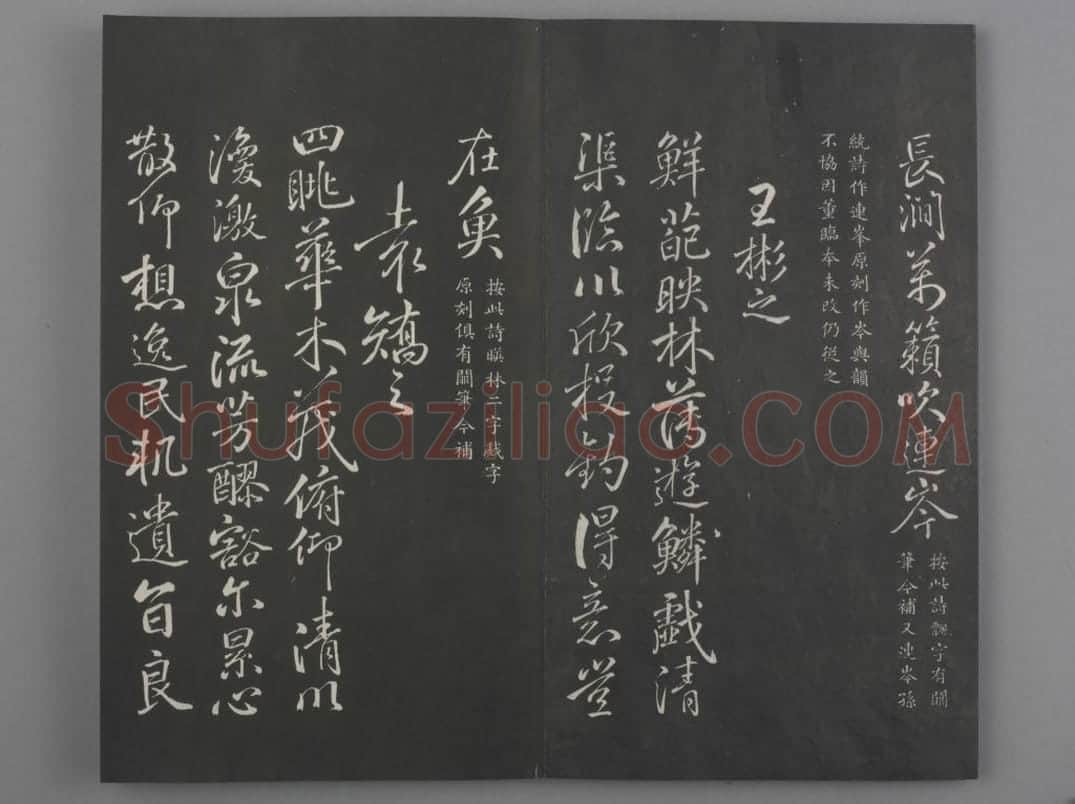 長澗萬籟吹連岑
按此詩飄字有闕
筆今補又連岑孫
統詩作連峯原刻作岑與韻
不協因董臨本未改仍從之
王彬之
鮮葩映林薄遊鱗戲清
渠臨川欣投釣得意豈
在魚
按此詩暎林二字戲字
原刻俱有闕筆今補
袁矯之
四眺華木茂俯仰清川
渙激泉流芳醪豁尔累心
散仰想逸民軌遺音良
Shufaziliao.COM